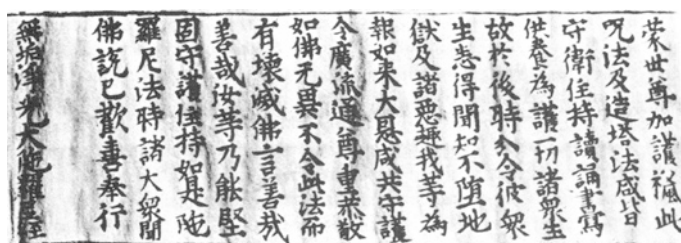 蒙世尊加護此
呪法及造塔法咸皆
守衛住持讀誦書寫
供養為護一切諸衆生
故於後時分令彼衆
生悉得聞知不墮地
獄及諸惡趣我等為
報如来大恩咸共守護
令廣流通尊重恭敬
如佛无異不令此法而
有壞滅佛言善哉
善哉汝等乃能堅
固守護住持如是陁
羅尼法時諸大衆聞
佛說已歡喜奉行
無垢淨光大陁羅尼經